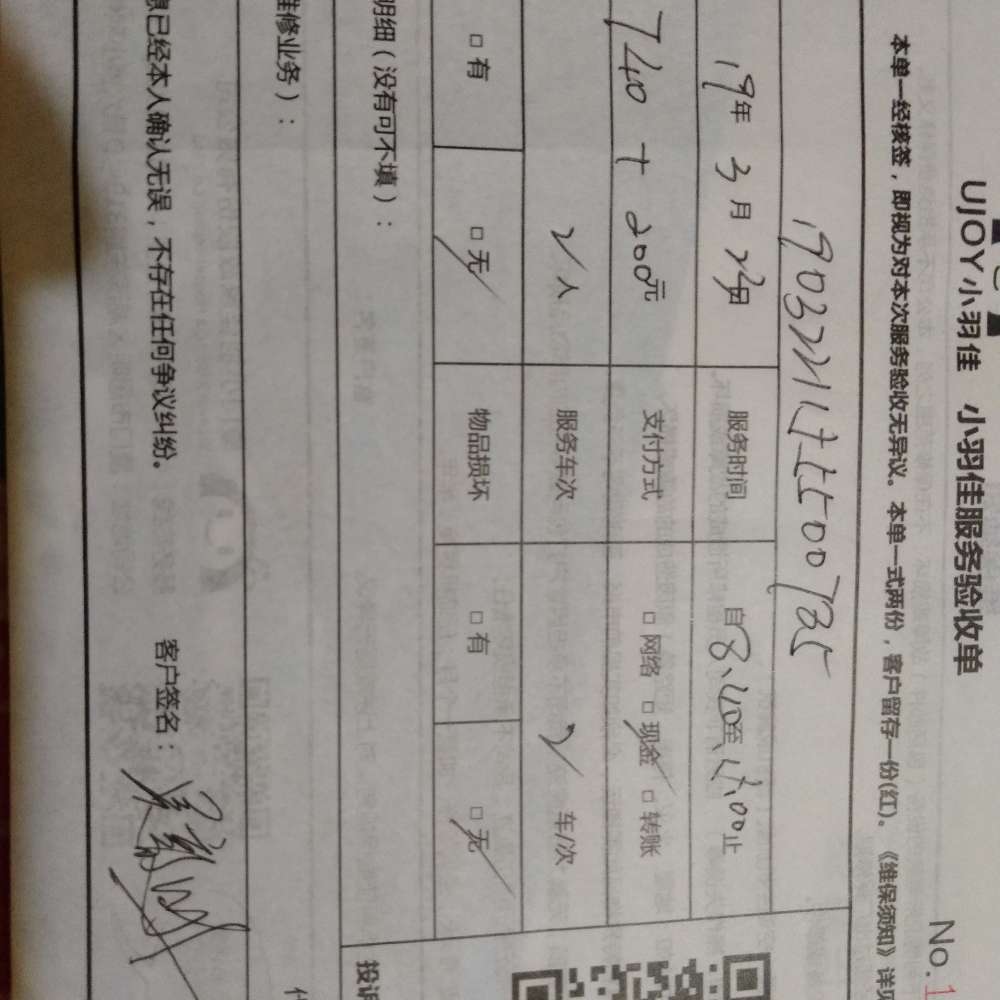 UJOY小羽佳 小羽佳服务验收单
No.1
本单一经核签，即视为对本次服务验收无异议。本单一式两份，客户留存一份(红)。《维保须知》详见
19年3月23日 服务时间 自8:40至15:00止
740+200元 支付方式 □网络 □现金 □转账
2人 服务车次 2车/次
□有 □无 物品损坏 □有 □无
明细（没有可不填）： 投诉
维修业务）：
息已经本人确认无误，不存在任何争议纠纷。 客户签名：